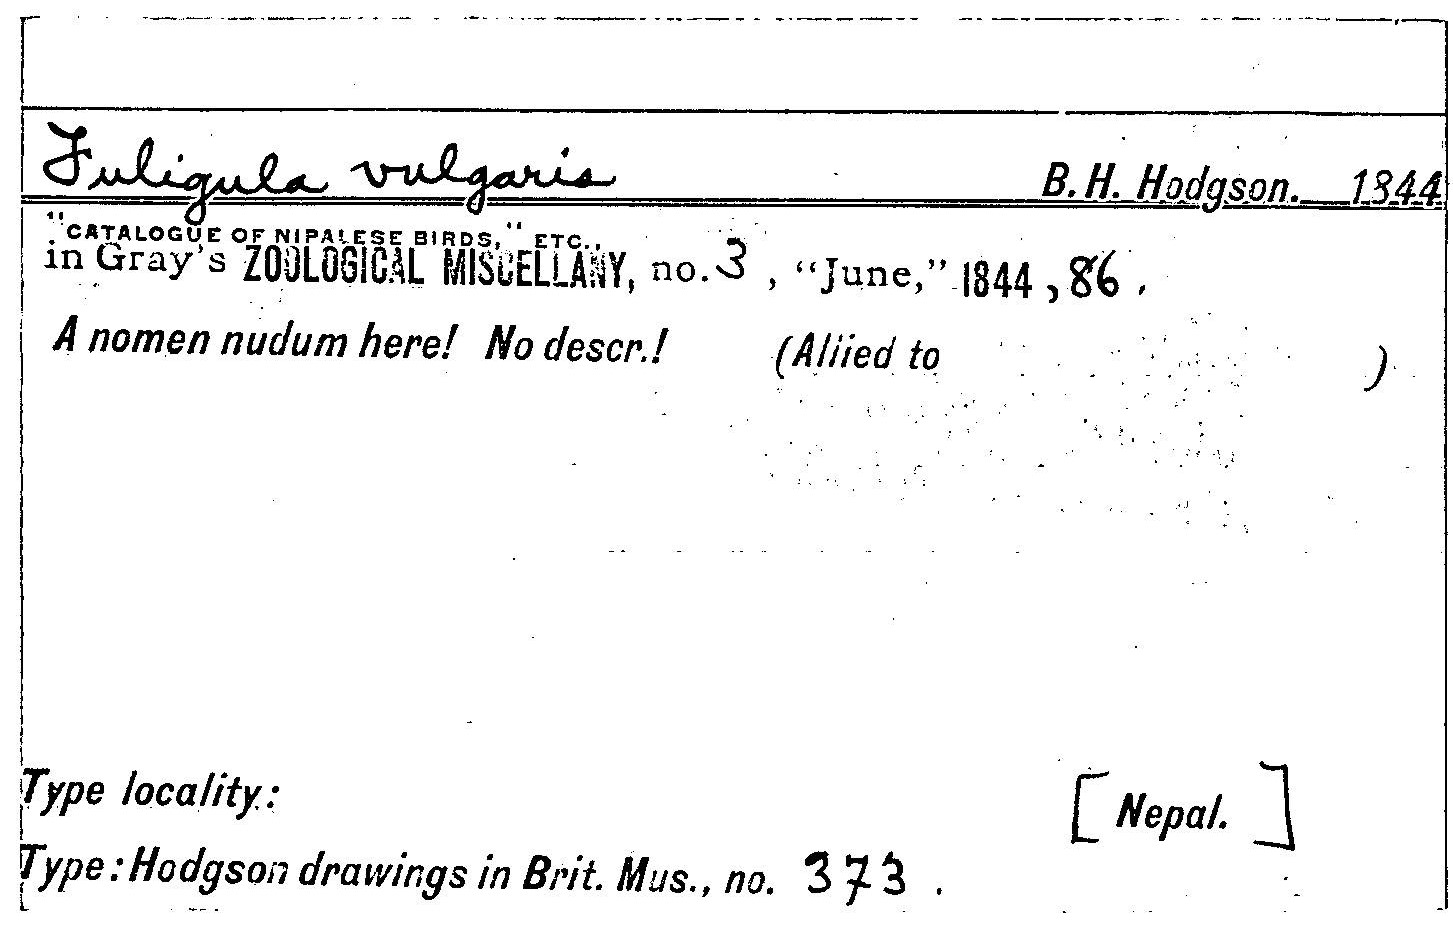 Fuligula vulgaris B. H. Hodgson. 1844
"CATALOGUE OF NIPALESE BIRDS," ETC.,
in Gray's ZOOLOGICAL MISCELLANY, no. 3, "June," 1844, 86.
A nomen nudum here! No descr.! (Allied to )
Type locality: [Nepal.]
Type: Hodgson drawings in Brit. Mus., no. 373.